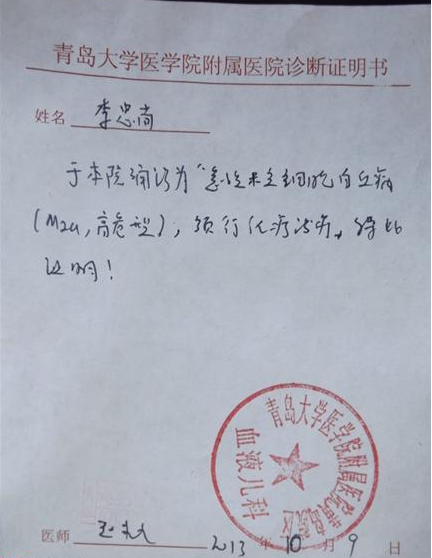 青岛大学医学院附属医院诊断证明书
姓名 李忠尚
于本院确诊为"急性未定细胞白血病
(M2a,高危型),须行化疗治疗。特此
证明!
青岛大学医学院附属医院
血液儿科
医师
2013年10月9日